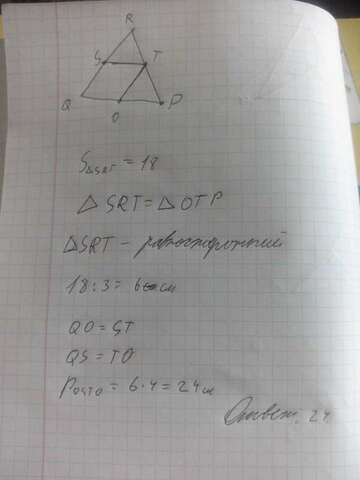 R
S T
Q O P
S△SRT = 18
△ SRT = △ OTP
△SRT – равносторонний
18:3 = 6 см
QO = ST
QS = TO
PQSTO = 6·4 = 24 см
Ответ: 24